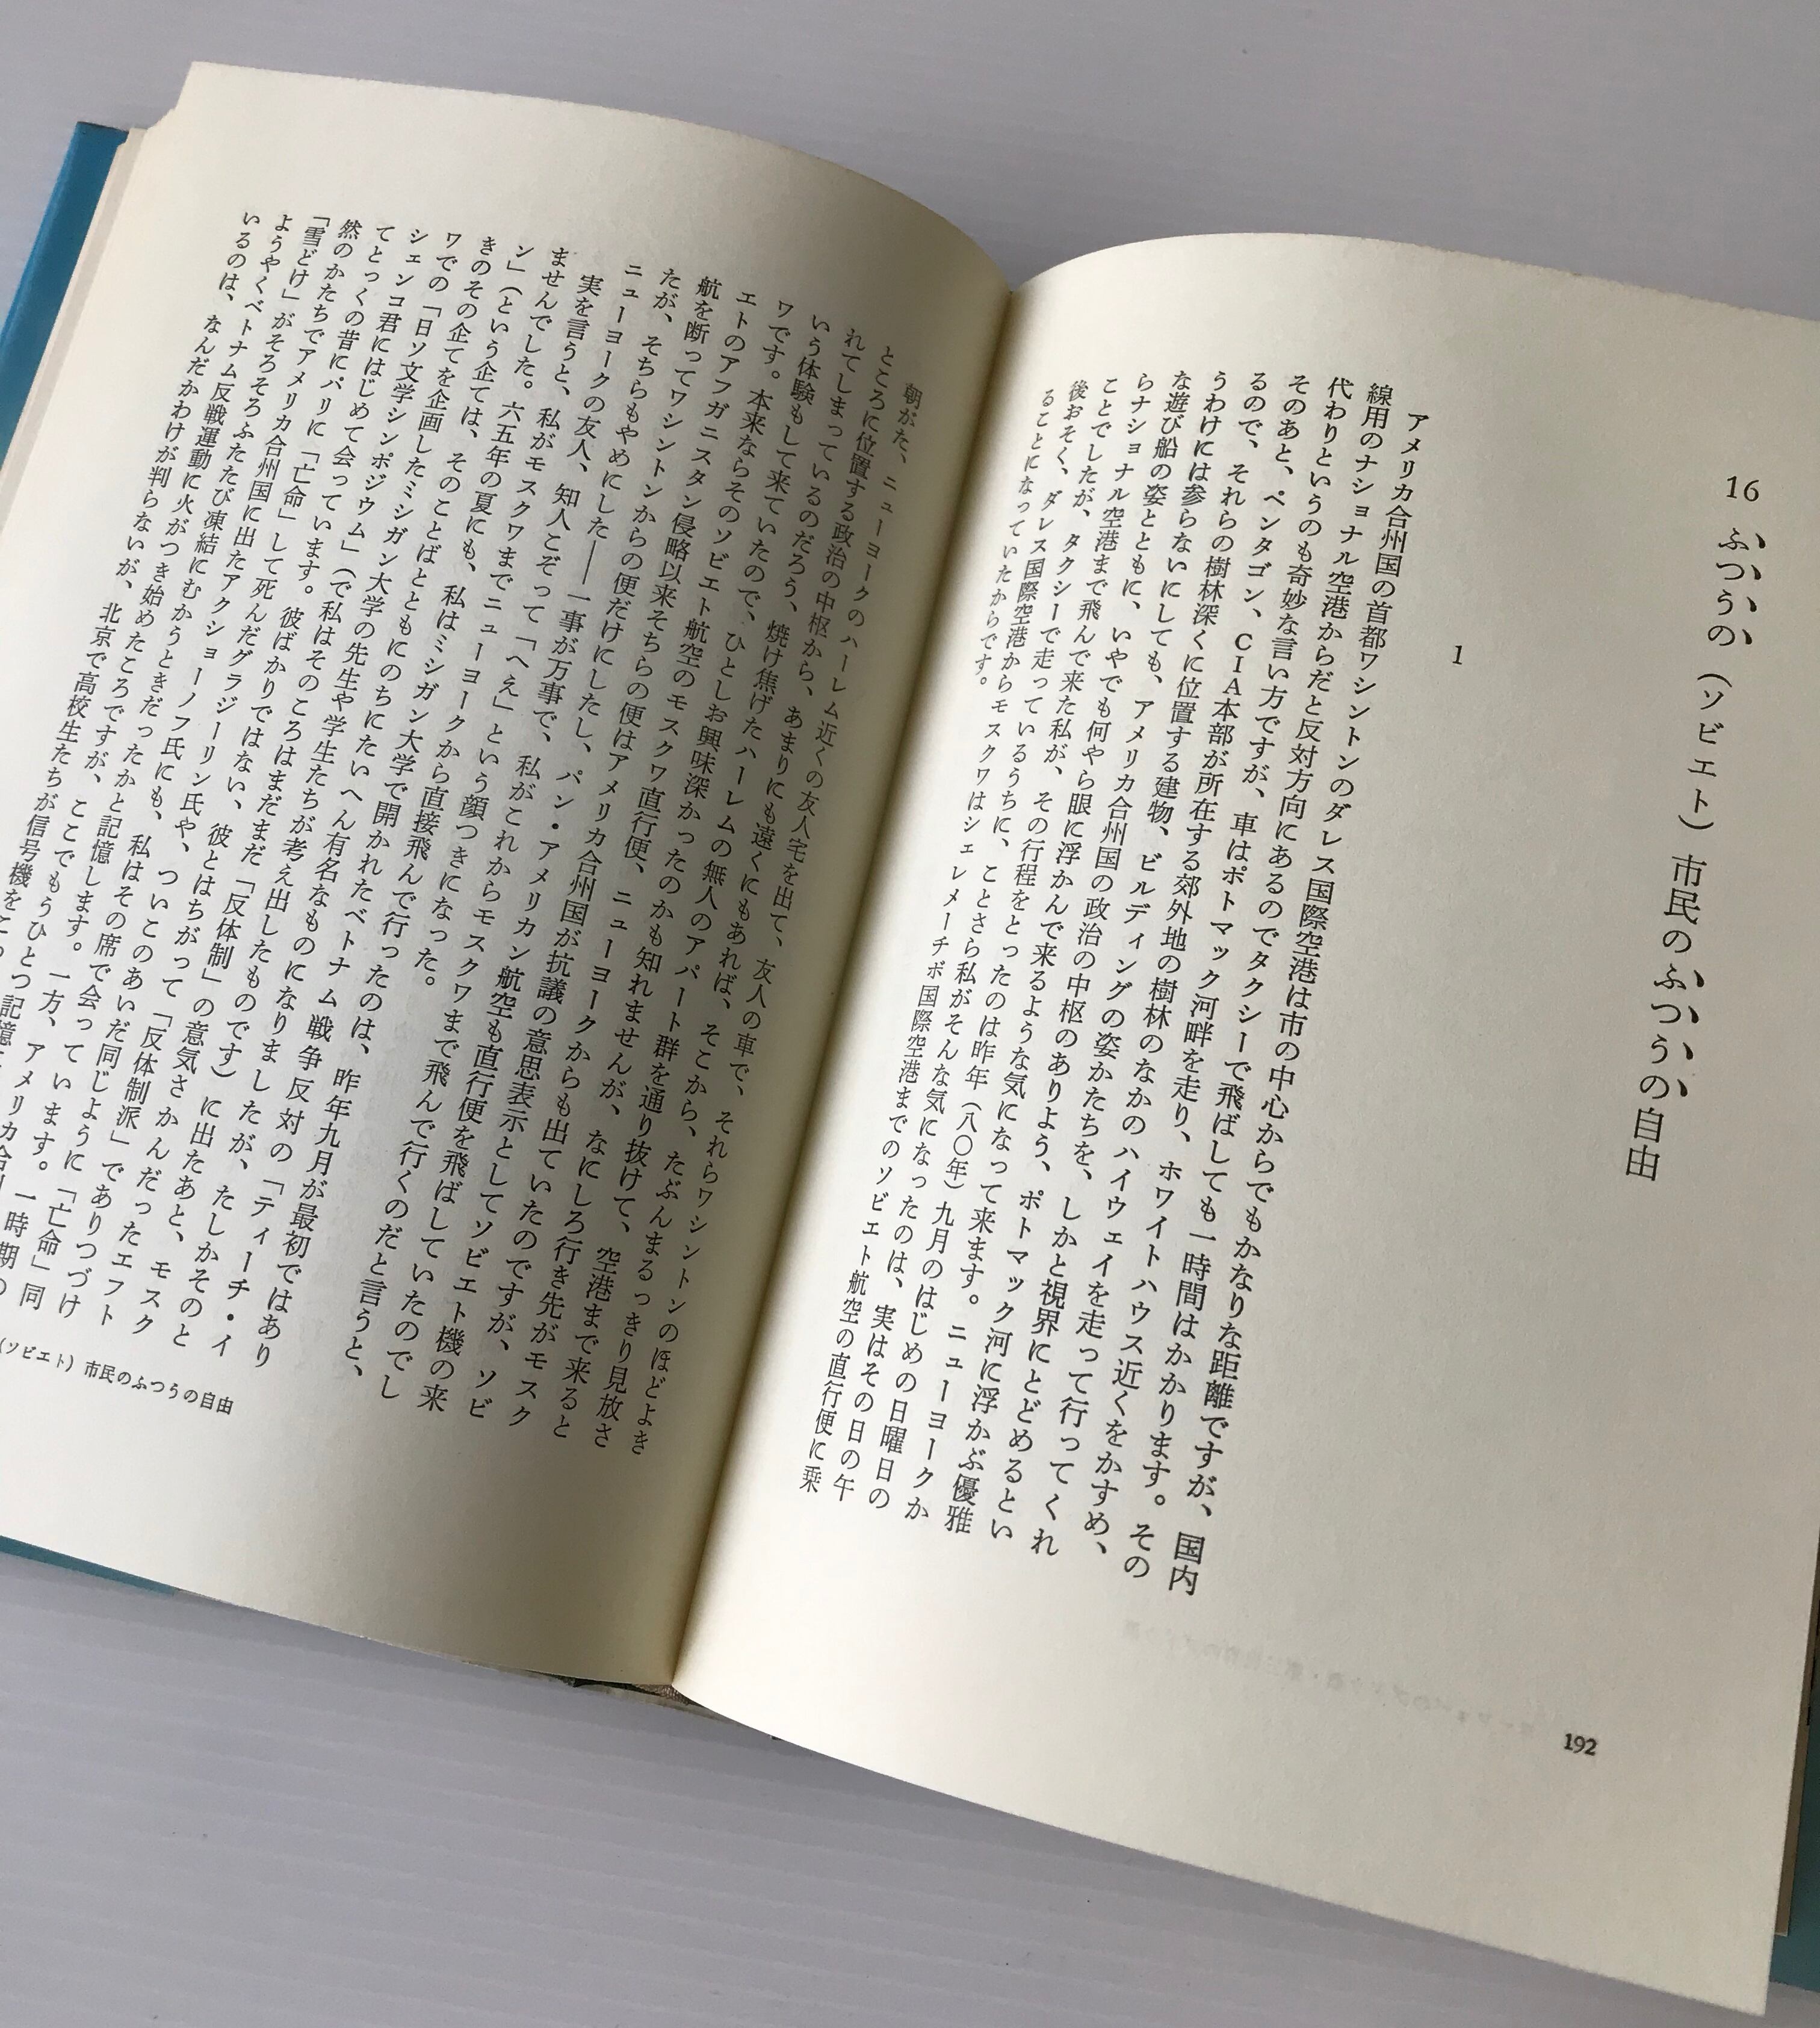 16 ふつうの（ソビエト）市民のふつうの自由
1
アメリカ合州国の首都ワシントンのダレス国際空港は市の中心からでもかなりな距離ですが、国内
線用のナショナル空港からだと反対方向にあるのでタクシーで飛ばしても一時間はかかります。その
代わりというのも奇妙な言い方ですが、車はポトマック河畔を走り、ホワイトハウス近くをかすめ、
そのあと、ペンタゴン、CIA本部が所在する郊外地の樹林のなかのハイウェイを走って行ってくれ
るので、それらの樹林深くに位置する建物、ビルディングの姿かたちを、しかと視界にとどめるとい
うわけには参らないにしても、アメリカ合州国の政治の中枢のありよう、ポトマック河に浮かぶ優雅
な遊び船の姿とともに、いやでも何やら眼に浮かんで来るような気になって来ます。ニューヨークか
らナショナル空港まで飛んで来た私が、その行程をとったのは昨年（八〇年）九月のはじめの日曜日の
ことでしたが、タクシーで走っているうちに、ことさら私がそんな気になったのは、実はその日の午
後おそく、ダレス国際空港からモスクワはシェレメーチボ国際空港までのソビエト航空の直行便に乗
ることになっていたからです。
192
朝がた、ニューヨークのハーレム近くの友人宅を出て、友人の車で、それらワシントンのほどよき
ところに位置する政治の中枢から、あまりにも遠くにもあれば、そこから、たぶんまるっきり見放さ
れてしまっているのだろう、焼け焦げたハーレムの無人のアパート群を通り抜けて、空港まで来ると
いう体験もして来ていたので、ひとしお興味深かったのかも知れませんが、なにしろ行き先がモスク
ワです。本来ならそのソビエト航空のモスクワ直行便、ニューヨークからも出ていたのですが、ソビ
エトのアフガニスタン侵略以来そちらの便はアメリカ合州国が抗議の意思表示としてソビエト機の来
航を断ってワシントンからの便だけにしたし、パン・アメリカン航空も直行便を飛ばしていたのでし
たが、そちらもやめにした――一事が万事で、私がこれからモスクワまで飛んで行くのだと言うと、
ニューヨークの友人、知人こぞって「へえ」という顔つきになった。
実を言うと、私がモスクワまでニューヨークから直接飛んで行ったのは、昨年九月が最初ではあり
ませんでした。六五年の夏にも、私はミシガン大学で開かれたベトナム戦争反対の「ティーチ・イ
ン」（という企ては、そのことばとともにのちにたいへん有名なものになりましたが、たしかそのと
きのその企てを企画したミシガン大学の先生や学生たちが考え出したものです）に出たあと、モスク
ワでの「日ソ文学シンポジウム」（で私はそのころはまだまだ「反体制」の意気さかんだったエフト
シェンコ君にはじめて会っています。彼ばかりではない、彼とはちがって「反体制派」でありつづけ
てとっくの昔にパリに「亡命」して死んだグラジーリン氏や、ついこのあいだ同じように「亡命」同
然のかたちでアメリカ合州国に出たアクショーノフ氏にも、私はその席で会っています。一時期の
「雪どけ」がそろそろふたたび凍結にむかうときだったかと記憶します。一方、アメリカ合
ようやくベトナム反戦運動に火がつき始めたころですが、ここでもうひとつ記憶
いるのは、なんだかわけが判らないが、北京で高校生たちが信号機を
（ソビエト）市民のふつうの自由